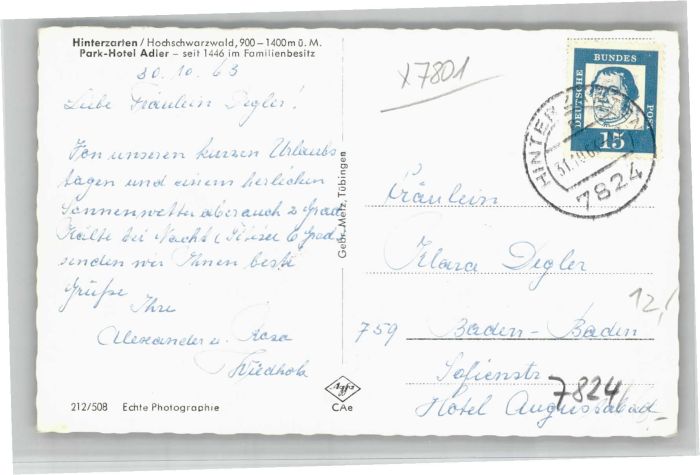 Hinterzarten / Hochschwarzwald, 900 – 1400 m ü. M.
Park-Hotel Adler – seit 1446 im Familienbesitz
30. 10. 63
Liebe Fräulein Degler!
Von unseren kurzen Urlaubs
tagen und einem herlichen
Sonnenwetter aber auch 2 Grad
Kälte bei Nacht ( 6 Grad
senden wir Ihnen beste
Grüße
Ihre
Alexander u. Rosa
Wiedholz
212/508 Echte Photographie
Gebr. Metz, Tübingen
CAe
Agfa
x7801
DEUTSCHE
BUNDES
POST
15
HINTERZARTEN
31.10.63
7824
Fräulein
Klara Degler
12,-
759 Baden-Baden
Sofienstr
7824
Hotel Augustabad